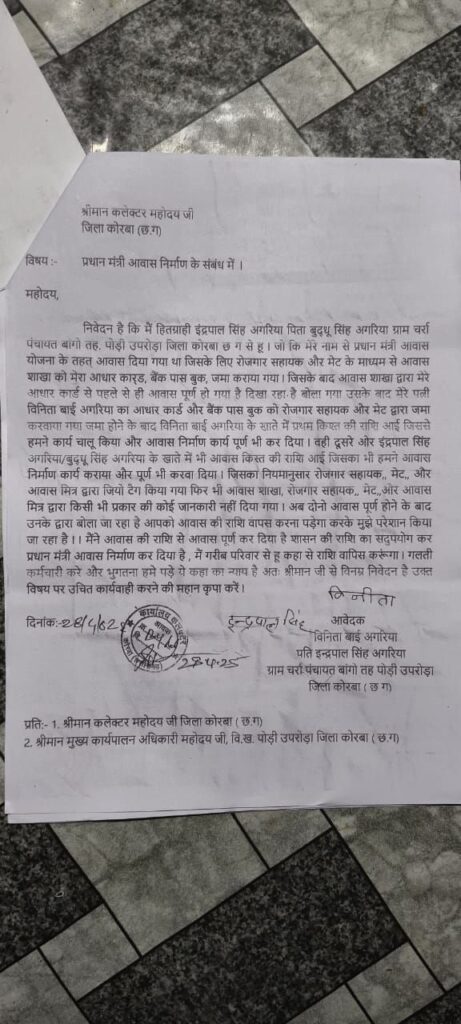 श्रीमान कलेक्टर महोदय जी
जिला कोरबा (छ.ग)
विषय :- प्रधान मंत्री आवास निर्माण के संबंध में ।
महोदय,
निवेदन है कि मैं हितग्राही इंद्रपाल सिंह अगरिया पिता बुद्धू सिंह अगरिया ग्राम चर्रा
पंचायत बांगो तह. पोड़ी उपरोड़ा जिला कोरबा छ ग से हू । जो कि मेरे नाम से प्रधान मंत्री आवास
योजना के तहत आवास दिया गया था जिसके लिए रोजगार सहायक और मेट के माध्यम से आवास
शाखा को मेरा आधार कार्ड, बैंक पास बुक, जमा कराया गया । जिसके बाद आवास शाखा द्वारा मेरे
आधार कार्ड से पहले से ही आवास पूर्ण हो गया है दिखा रहा है बोला गया उसके बाद मेरे पत्नी
विनिता बाई अगरिया का आधार कार्ड और बैंक पास बुक को रोजगार सहायक और मेट द्वारा जमा
करवाया गया जमा होने के बाद विनिता बाई अगरिया के खाते में प्रथम किश्त की राशि आई जिससे
हमने कार्य चालू किया और आवास निर्माण कार्य पूर्ण भी कर दिया। वही दूसरे ओर इंद्रपाल सिंह
अगरिया/बुद्धू सिंह अगरिया के खाते में भी आवास किस्त की राशि आई जिसका भी हमने आवास
निर्माण कार्य कराया और पूर्ण भी करवा दिया । जिसका नियमानुसार रोजगार सहायक,, मेट,, और
आवास मित्र द्वारा जियो टैग किया गया फिर भी आवास शाखा, रोजगार सहायक,, मेट,,और आवास
मित्र द्वारा किसी भी प्रकार की कोई जानकारी नहीं दिया गया । अब दोनो आवास पूर्ण होने के बाद
उनके द्वारा बोला जा रहा है आपको आवास की राशि वापस करना पड़ेगा करके मुझे परेशान किया
जा रहा है । । मैंने आवास की राशि से आवास पूर्ण कर दिया है शासन की राशि का सदुपयोग कर
प्रधान मंत्री आवास निर्माण कर दिया है , मैं गरीब परिवार से हू कहा से राशि वापिस करूंगा। गलती
कर्मचारी करे और भुगतना हमे पड़े ये कहा का न्याय है अतः श्रीमान जी से विनम्र निवेदन है उक्त
विषय पर उचित कार्यवाही करने की महान कृपा करें ।
विनीता
दिनांक:-28/4/25
इन्द्रपाल सिंह
आवेदक
कार्यालय कलेक्टर
28.4.25
विनिता बाई अगरिया
पति इन्द्रपाल सिंह अगरिया
ग्राम चर्रा पंचायत बांगो तह पोड़ी उपरोड़ा
जिला कोरबा (छ ग)
प्रति:- 1. श्रीमान कलेक्टर महोदय जी जिला कोरबा ( छ.ग)
2. श्रीमान मुख्य कार्यपालन अधिकारी महोदय जी, वि.ख. पोड़ी उपरोड़ा जिला कोरबा ( छ.ग)